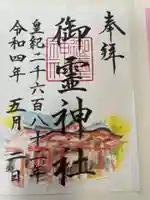 奉拝
御靈神社
皇紀二千六百八十二年
令和四年五月